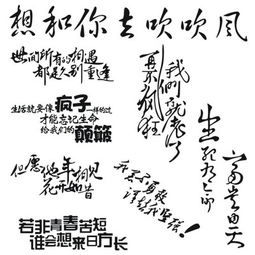 想和你去吹吹风
世间所有的相遇
都是久别重逢
生活就要像疯子一样的过
才能忘记生命
给我们的颠簸
但愿他年相见
花开如昔
若非青春苦短
谁会想来日方长
再不疯狂
我们就老了
我要不要脸
生死有命
富贵由天